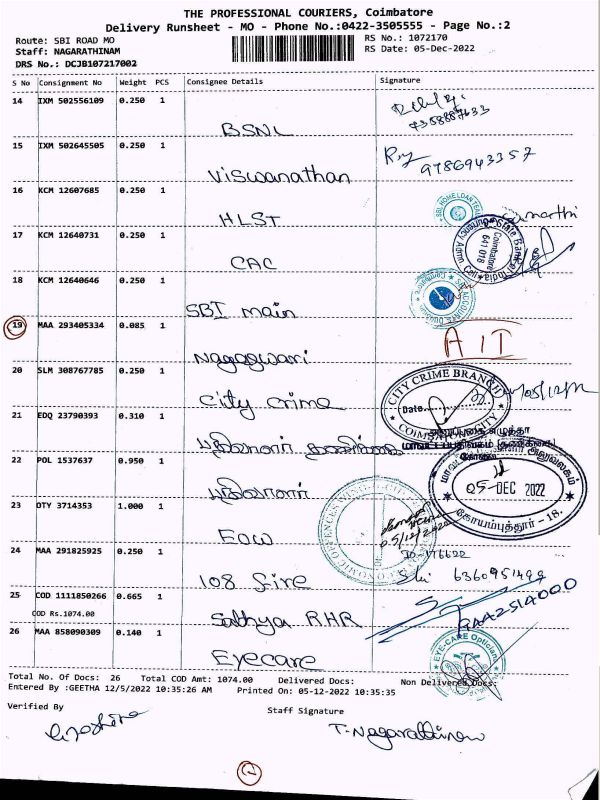 THE PROFESSIONAL COURIERS, Coimbatore
Delivery Runsheet - MO - Phone No.:0422-3505555 - Page No.:2
Route: SBI ROAD MO
RS No.: 1072170
Staff: NAGARATHINAM
RS Date: 05-Dec-2022
DRS No.: DCJB107217002
S No Consignment No Weight PCS Consignee Details Signature
14 IXM 502556109 0.250 1
BSNL
15 IXM 502645505 0.250 1
9786943357
Viswanathan
16 KCM 12607685 0.250 1
SBI HOME LOAN
HLST
17 KCM 12640731 0.250 1
State Bank of India
Currency Admn. Cell
Coimbatore
641 018
CAC
18 KCM 12640646 0.250 1
SBI main
19 MAA 293405334 0.085 1
A II
Nagaswari
20 SLM 308767785 0.250 1
CITY CRIME BRANCH
Date
COIMBATORE CITY
City Crime
21 EDQ 23790393 0.310 1
22 POL 1537637 0.950 1
05-DEC 2022
கோயம்புத்தூர் - 18.
23 OTY 3714353 1.000 1
05/12/2022
EOW
24 MAA 291825925 0.250 1
108 fire
25 COD 1111850266 0.665 1
COD Rs.1074.00
Sathya RHR
26 MAA 858090309 0.140 1
EYE-CARE Opticians
Eyecare
Total No. Of Docs: 26 Total COD Amt: 1074.00 Delivered Docs: Non Delivered Docs:
Entered By :GEETHA 12/5/2022 10:35:26 AM Printed On: 05-12-2022 10:35:35
Verified By
Staff Signature
T. Nagarathinam